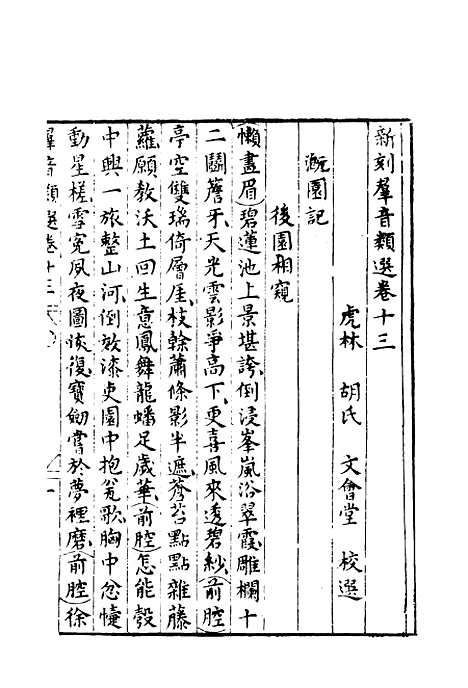 新刻羣音類選卷十三
虎林 胡氏 文會堂 校選
灌園記
後園相窺
懶畫眉碧蓮池上景堪誇倒浸峯嵐浴翠霞雕欄十
二鬬簷牙天光雲影爭高下更喜風來透碧紗前腔
亭空雙瑞倚層厓枝榦蕭條影半遮蒼苔點點雜藤
蘿願教沃土回生意鳳舞龍蟠足歲華前腔怎能彀
中興一旅整山河倒做漆吏園中抱瓮歌胸中忿懥
動星槎雪冤夙夜圖恢復寶劍嘗於夢裡磨前腔徐
羣音類選卷十三 一